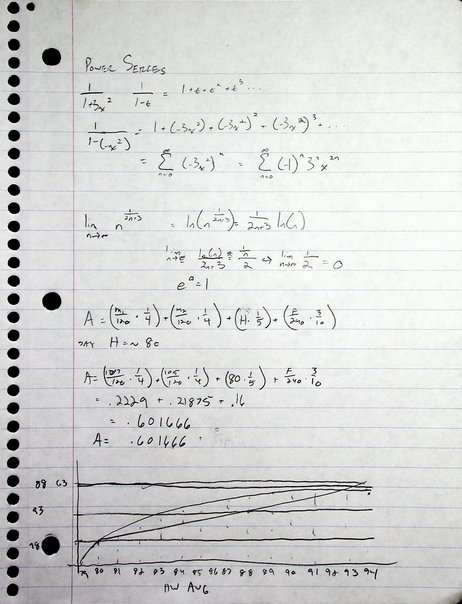 Power Series
1/(1+3x²)   1/(1-t) = 1+t+t²+t³...
1/(1-(-x²)) = 1+(-3x²)+(-3x²)²+(-3x²)³+...
= Σ n=0 ∞ (-3x²)ⁿ = Σ n=0 ∞ (-1)ⁿ3ⁿx²ⁿ
lim n→∞ n^(1/(2n+3)) = ln(n^(1/(2n+3))) = 1/(2n+3) ln(n)
lim n→∞ ln(n)/(2n+3) = (1/n)/2 → lim n→∞ 1/2n = 0
e⁰=1
A = (m₁/120 · 1/4) + (m₂/120 · 1/4) + (H · 1/5) + (F/240 · 3/10)
say H = ~80
A = (107/120 · 1/4) + (105/120 · 1/4) + (80 · 1/5) + F/240 · 3/10
= .2229 + .21875 + .16
= .601666
A = .601666
88 63
93
78
79 80 81 82 83 84 85 86 87 88 89 90 91 92 93 94
HW AVG